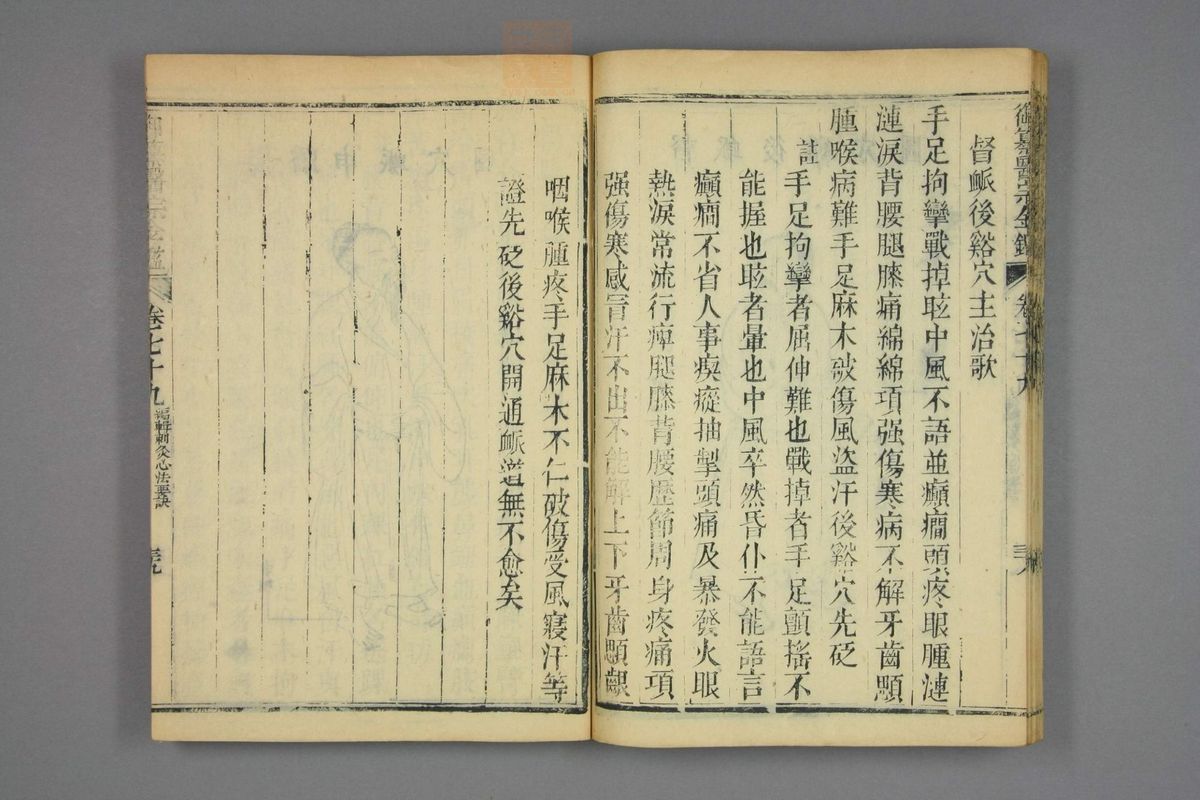 御纂醫宗金鑑
督脈後谿穴主治歌
手足拘攣戰掉眩中風不語並癲癎頭疼眼腫漣
漣淚背腰腿膝痛綿綿項强傷寒病不解牙齒顋
腫喉病難手足麻木破傷風盜汗後谿穴先砭
註手足拘攣者屈伸難也戰掉者手足顫搖不
能握也眩者暈也中風卒然昏仆不能語言
癲癎不省人事瘈瘲抽掣頭痛及暴發火眼
熱淚常流行痺腿膝背腰歷節周身疼痛項
强傷寒感冒汗不出不能解上下牙齒顋齦
咽喉腫疼手足麻木不仁破傷受風寢汗等
證先砭後谿穴開通脈道無不愈矣
御纂醫宗金鑑
卷七十九 編輯刺灸心法要訣 三九